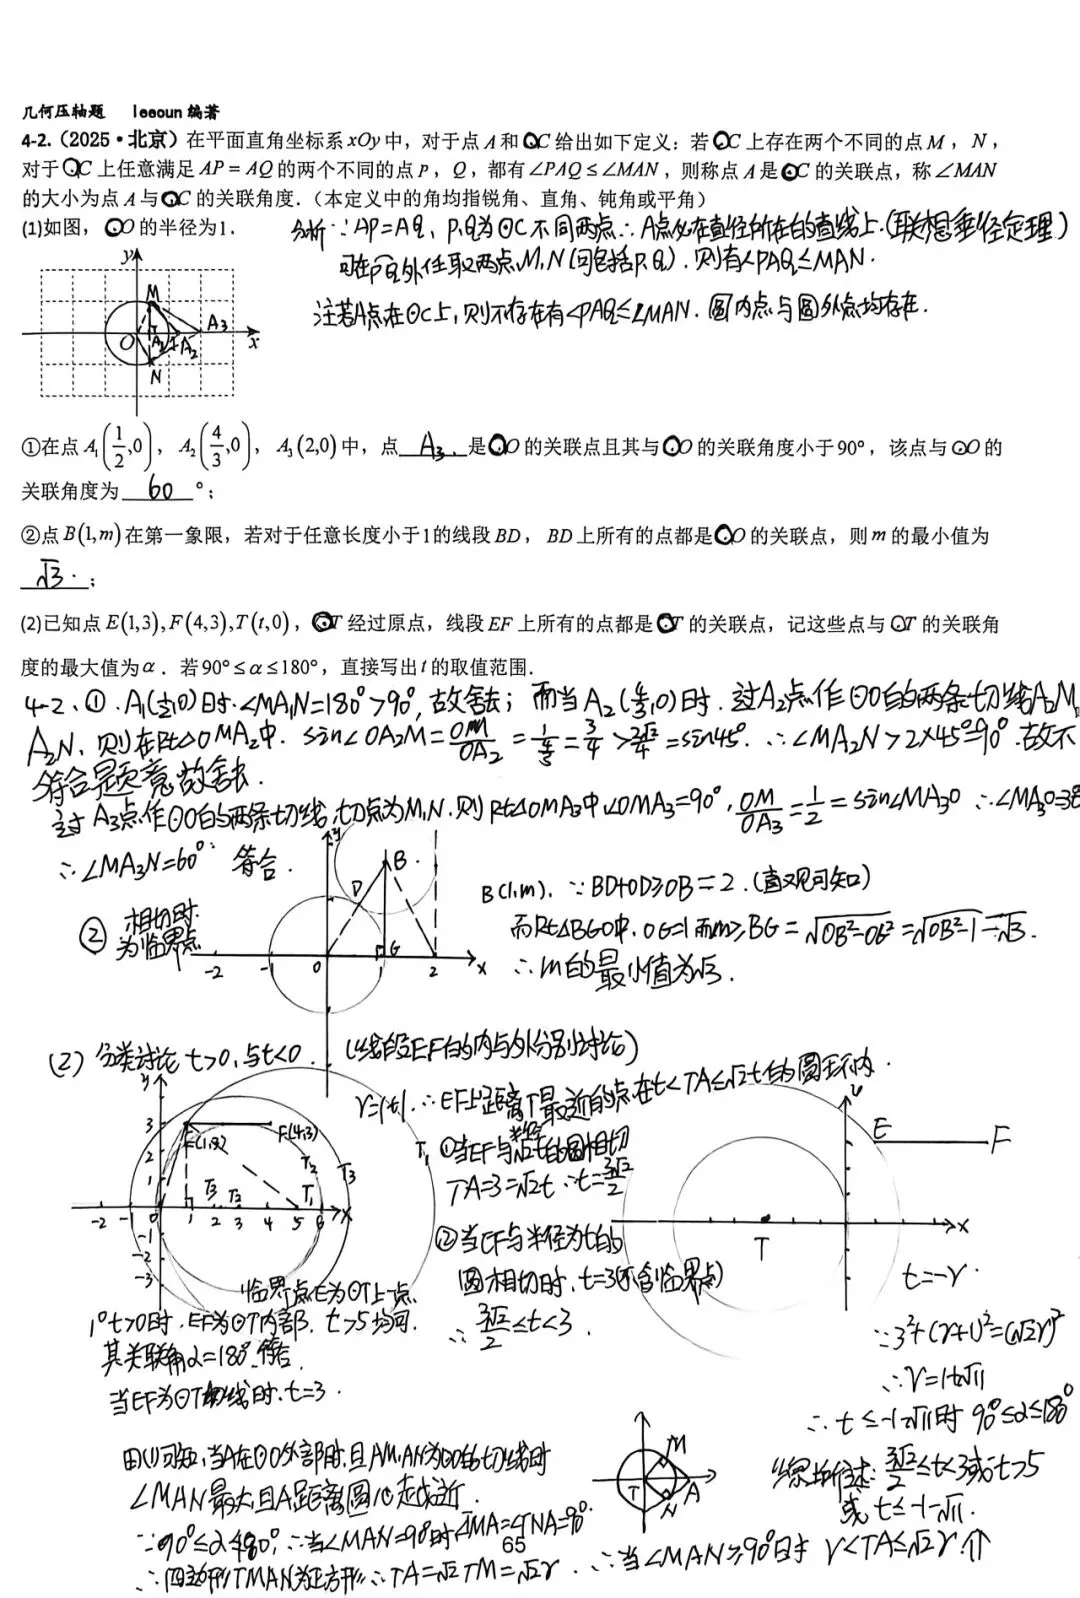 几何压轴题 leeoun 编著
4-2.（2025·北京）在平面直角坐标系xOy中，对于点A和⊙C给出如下定义：若⊙C上存在两个不同的点M，N，
对于⊙C上任意满足AP=AQ的两个不同的点P，Q，都有∠PAQ≤∠MAN，则称点A是⊙C的关联点，称∠MAN
的大小为点A与⊙C的关联角度.（本定义中的角均指锐角、直角、钝角或平角）
(1)如图，⊙O的半径为1.
分析∵AP=AQ，P、Q为⊙C不同两点∴A点必在直径所在的直线上.(联想垂径定理)
可在PQ外任取两点M,N(可包括P,Q).则有∠PAQ≤MAN.
注若A点在⊙C上,则不存在有∠PAQ≤∠MAN.圆内点与圆外点均存在.
y
M
O A₁ A₂ A₃
x
N
①在点A₁(1/2,0)，A₂(4/3,0)，A₃(2,0)中，点 A₃. 是⊙O的关联点且其与⊙O的关联角度小于90°，该点与⊙O的
关联角度为 60 °；
②点B(1,m)在第一象限，若对于任意长度小于1的线段BD，BD上所有的点都是⊙O的关联点，则m的最小值为
√3. ；
(2)已知点E(1,3),F(4,3),T(t,0)，⊙T经过原点，线段EF上所有的点都是⊙T的关联点，记这些点与⊙T的关联角
度的最大值为α．若90°≤α≤180°，直接写出t的取值范围.
4-2、①.A₁(½,0)时.∠MA₁N=180°>90°,故舍去；而当A₂(4/3,0)时.过A₂点作⊙O的两条切线A₂M,
A₂N,则在Rt△OMA₂中.sin∠OA₂M=OM/OA₂=1/(4/3)=3/4>√2/2=sin45°.∴∠MA₂N>2×45°=90°.故不
符合题意故舍去.
过A₃点作⊙O的两条切线,切点为M,N.则Rt△OMA₃中∠OMA₃=90°,OM/OA₃=1/2=sin∠MA₃O ∴∠MA₃O=30
∴∠MA₃N=60° 符合.
② 相切时
为临界点
y
B
D
G
-2 -1 0 1 2 x
B(1,m). ∵BD+OD≥OB=2.(直观可知)
而Rt△BGO中,OG=1而m≥BG=√OB²-OG²=√OB²-1=√3.
∴m的最小值为√3.
(2)分类讨论t>0,与t<0. (以线段EF的内与外分别讨论)
r=|t|.∴EF上距离T最近的点在t<TA≤√2t的圆环内.
y
3 E(1,3) F(4,3)
2
1
-2 -1 0 1 2 3 4 5 6 x
-1
-2
-3
T₁ T₂ T₃
①当EF与半径√2t的圆相切
TA=3=√2t ∴t=3√2/2
②当EF与半径为t的
圆相切时.t=3(不含临界点)
∴3√2/2≤t<3.
E F
T x
t=-r.
∵3²+(r+1)²=(√2r)²
∴r=1+√11
∴t≤-1-√11时 90°≤α≤180°
临界点E为⊙T上一点.
1°t>0时.EF为⊙T内部.t>5均可.
其关联角α=180°.符合.
当EF为⊙T切线时.t=3.
由(1)可知,当A在⊙O外部时,且AM,AN为⊙O的切线时
∠MAN最大,且A距离圆心越近.
∵90°≤α≤180°,∴当∠MAN=90°时∠TMA=∠TNA=90°.
∴四边形TMAN为正方形∴TA=√2TM=√2r.∴当∠MAN≥90°时 r<TA≤√2r.
T M N A
综上所述:3√2/2≤t<3或t>5
或t≤-1-√11.
65